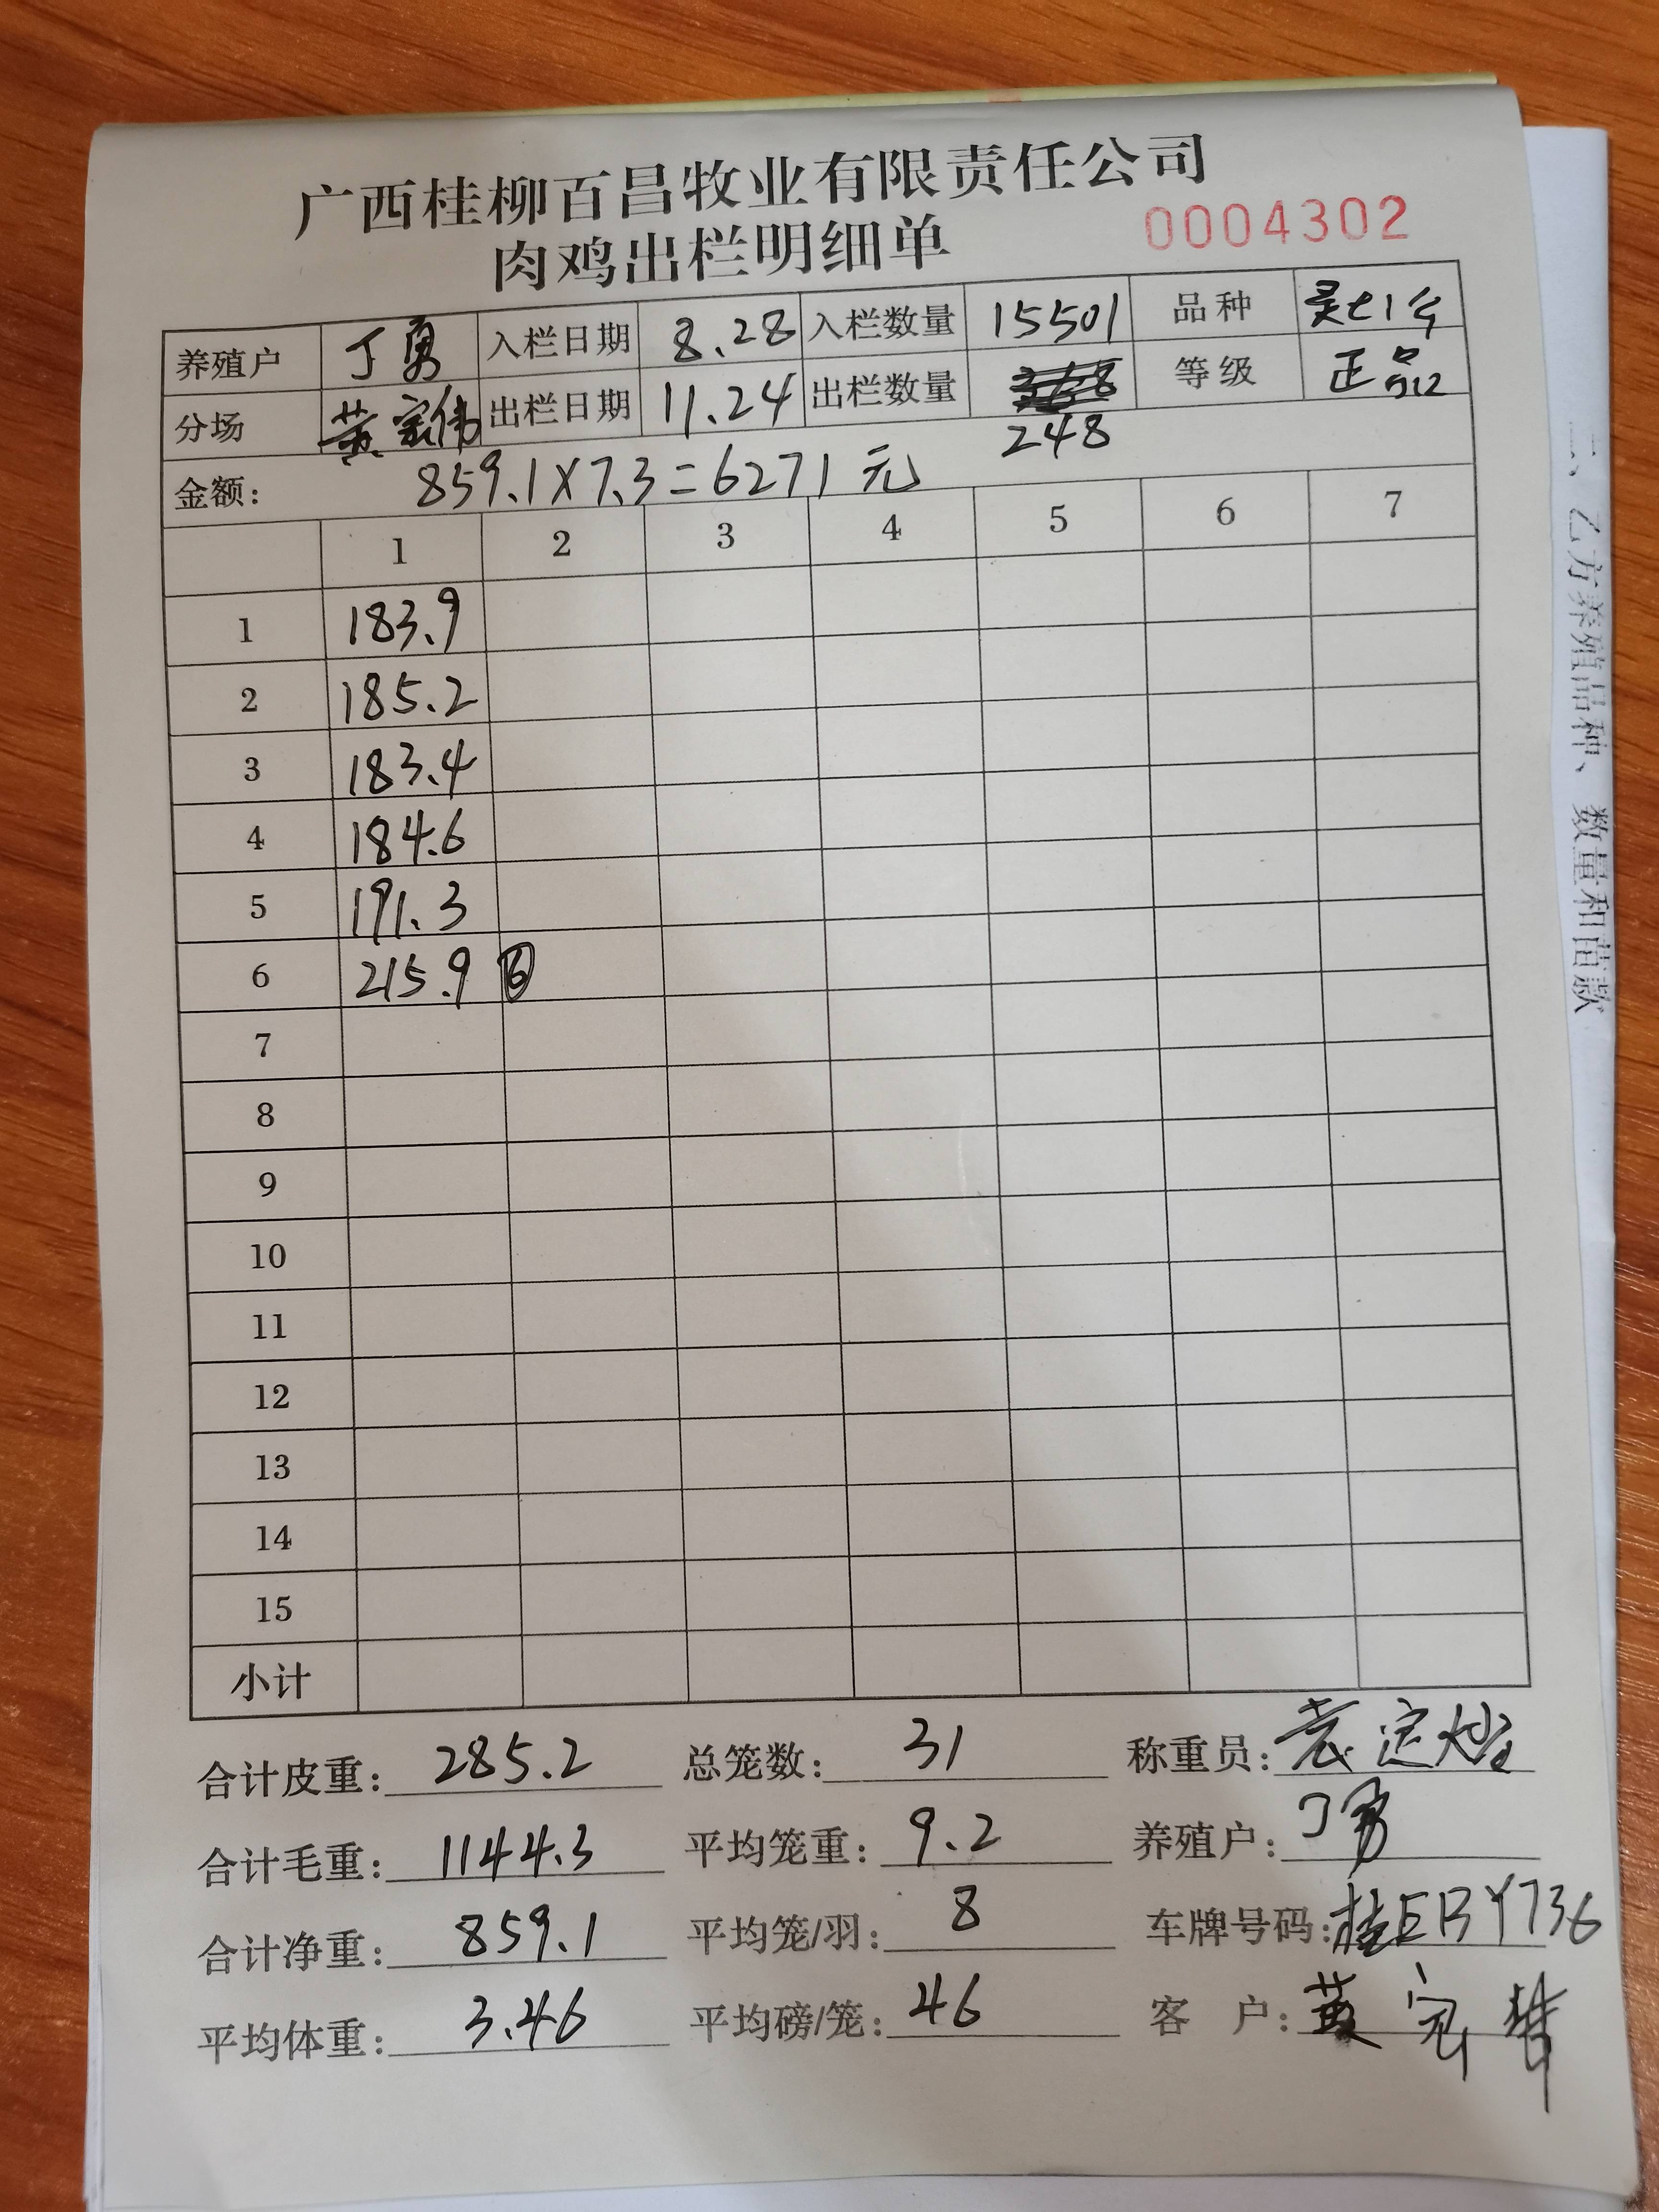 广西桂柳百昌牧业有限责任公司
肉鸡出栏明细单 0004302
养殖户 丁勇 入栏日期 8.28 入栏数量 15501 品种
分场 黄宗伟 出栏日期 11.24 出栏数量 248 等级 正品
金额: 859.1×7.3=6271元
1 2 3 4 5 6 7
1 183.9
2 185.2
3 183.4
4 184.6
5 191.3
6 215.9 ⑥
7
8
9
10
11
12
13
14
15
小计
合计皮重: 285.2 总笼数: 31 称重员:
合计毛重: 1144.3 平均笼重: 9.2 养殖户: 丁勇
合计净重: 859.1 平均笼/羽: 8 车牌号码: 桂EBY736
平均体重: 3.46 平均磅/笼: 46 客 户: 黄
二、乙方养殖品种、数量和苗款